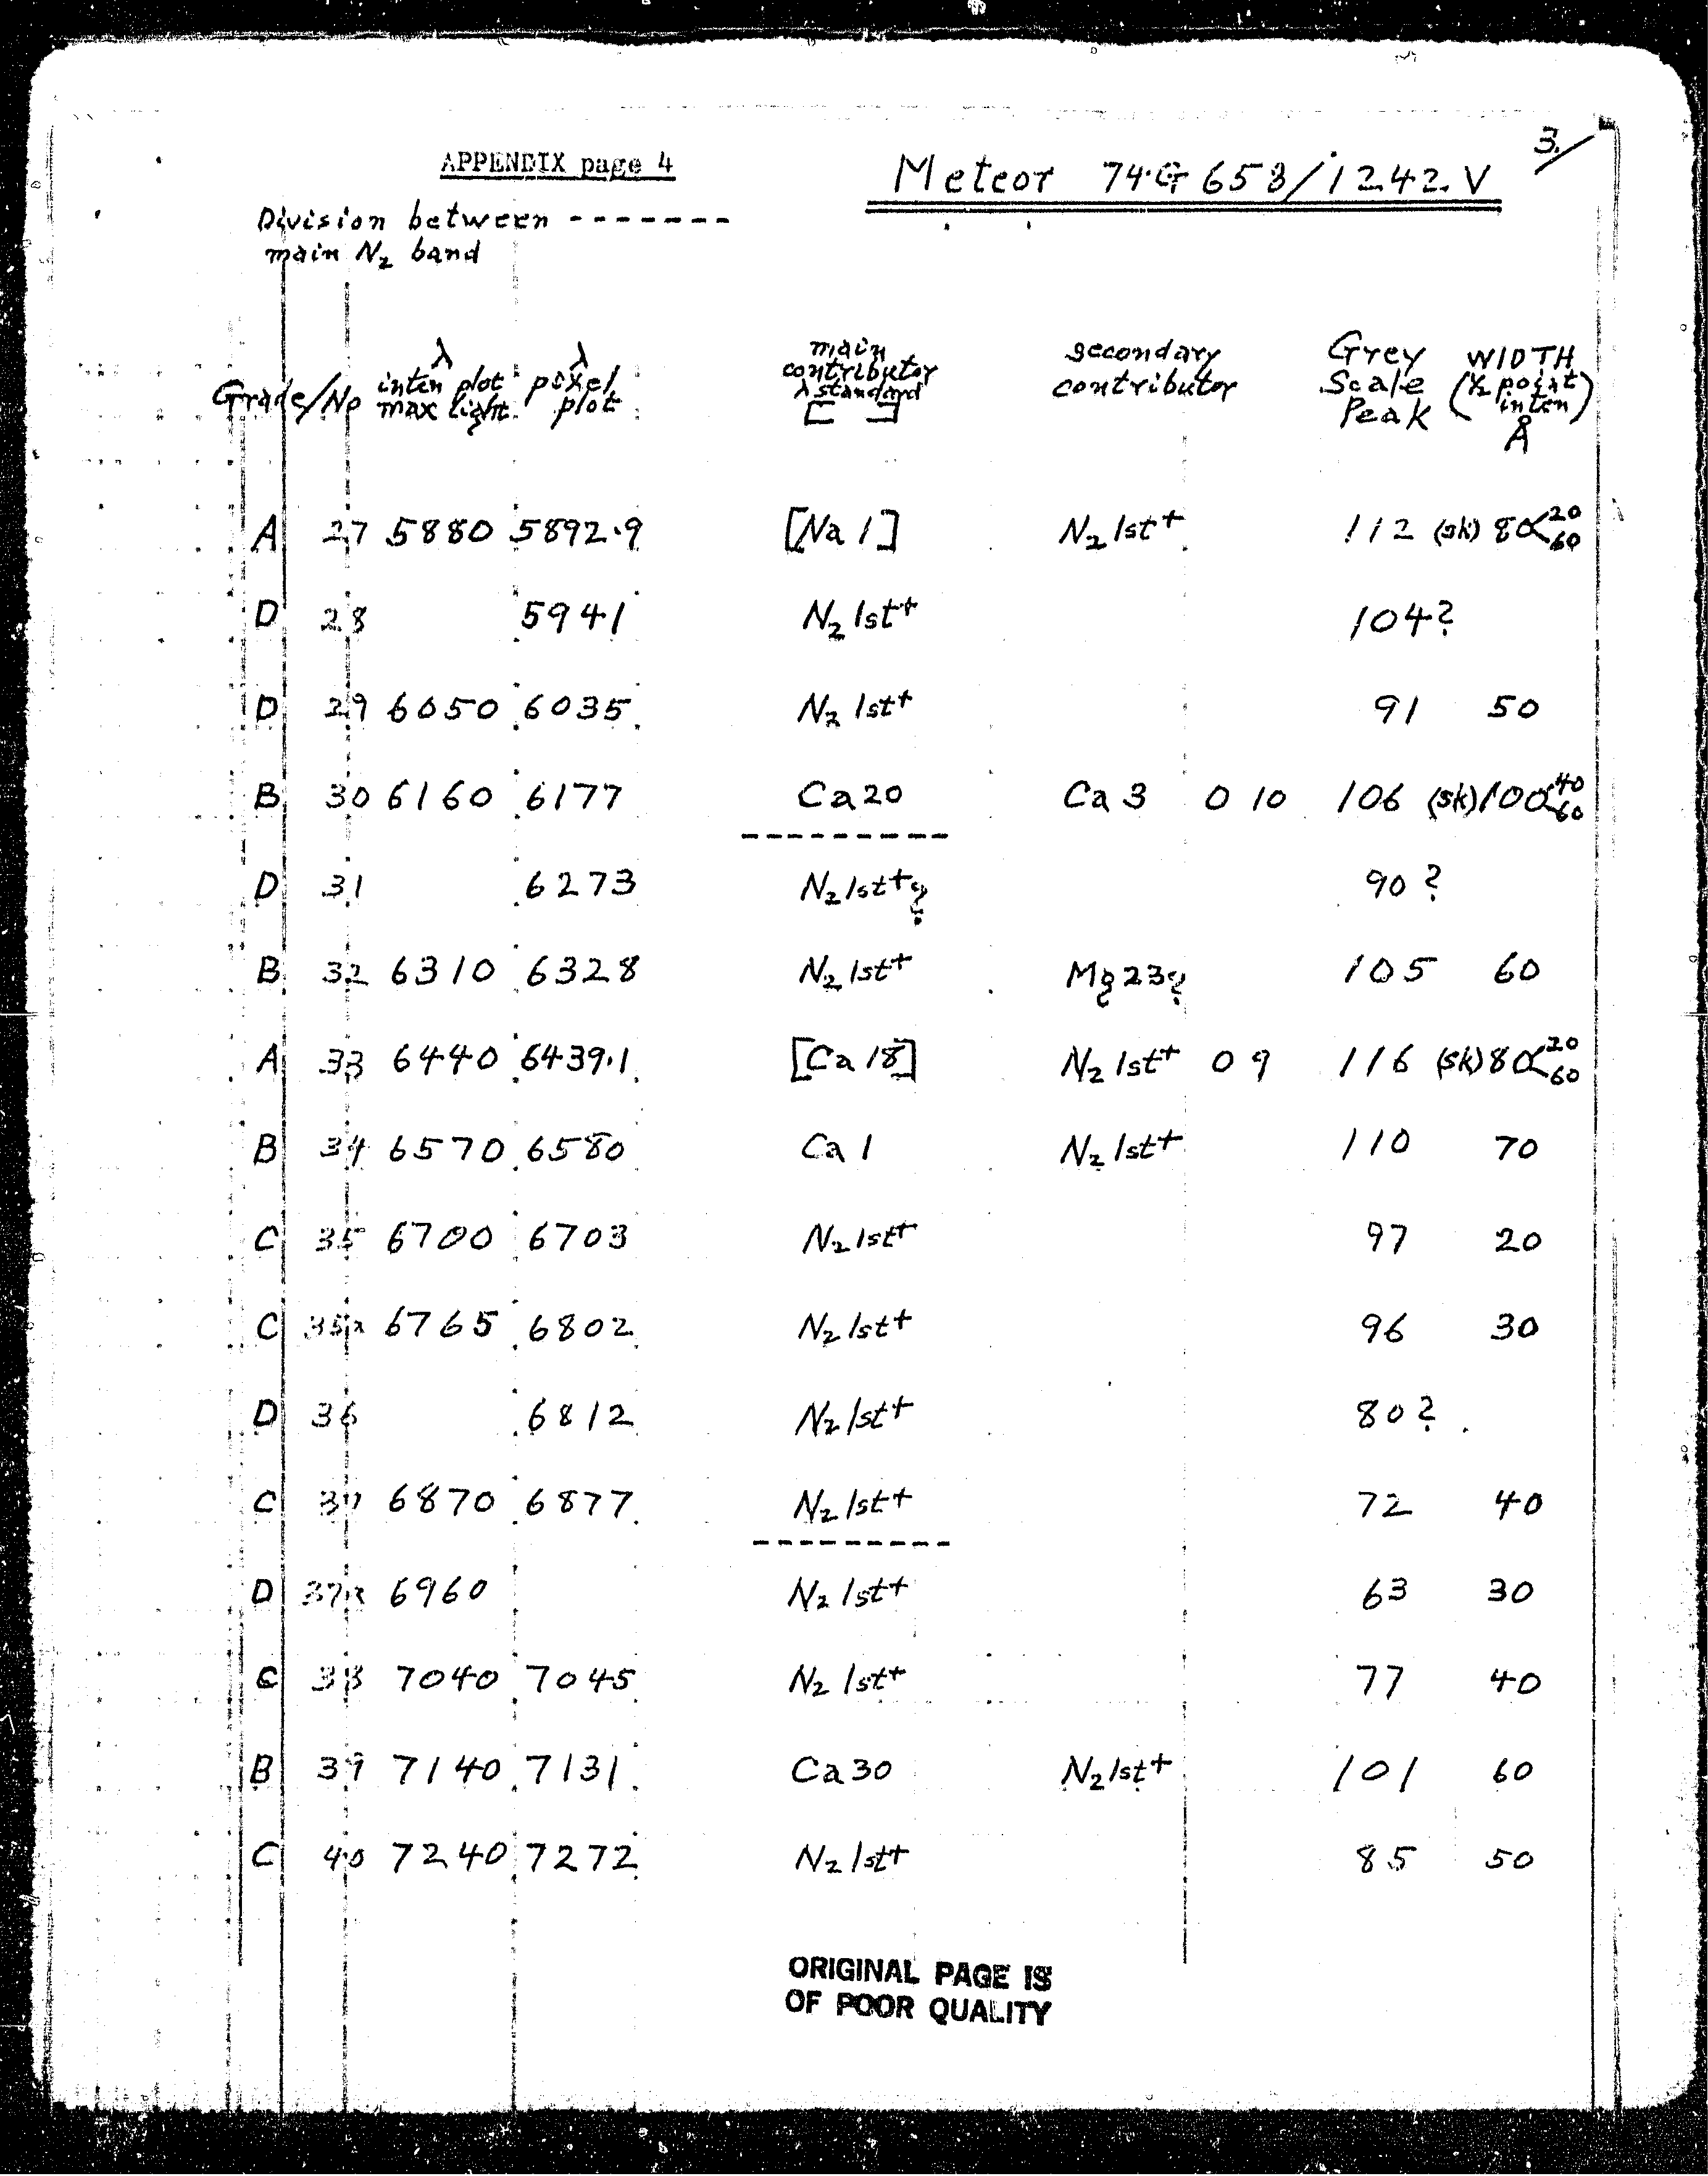 3/
APPENDIX page 4
Meteor 74G658/1242V
Division between -------
main N₂ band
Grade/No λ inten plot max light λ pixel plot main contributor λ standard [ ] secondary contributor Grey Scale Peak WIDTH (½ point inten) Å
A 27 5880 5892.9 [Na 1] N₂ 1st+ 112 (sk) 80<20 60
D 28 5941 N₂ 1st+ 104?
D 29 6050 6035 N₂ 1st+ 91 50
B 30 6160 6177 Ca 20 Ca 3 0 10 106 (sk) 100<40 60
---------
D 31 6273 N₂ 1st+? 90?
B 32 6310 6328 N₂ 1st+ Mg 23? 105 60
A 33 6440 6439.1 [Ca 18] N₂ 1st+ 0 9 116 (sk) 80<20 60
B 34 6570 6580 Ca 1 N₂ 1st+ 110 70
C 35 6700 6703 N₂ 1st+ 97 20
C 35a 6765 6802 N₂ 1st+ 96 30
D 36 6812 N₂ 1st+ 80?
C 37 6870 6877 N₂ 1st+ 72 40
---------
D 37a 6960 N₂ 1st+ 63 30
C 38 7040 7045 N₂ 1st+ 77 40
B 39 7140 7131 Ca 30 N₂ 1st+ 101 60
C 40 7240 7272 N₂ 1st+ 85 50
ORIGINAL PAGE IS
OF POOR QUALITY